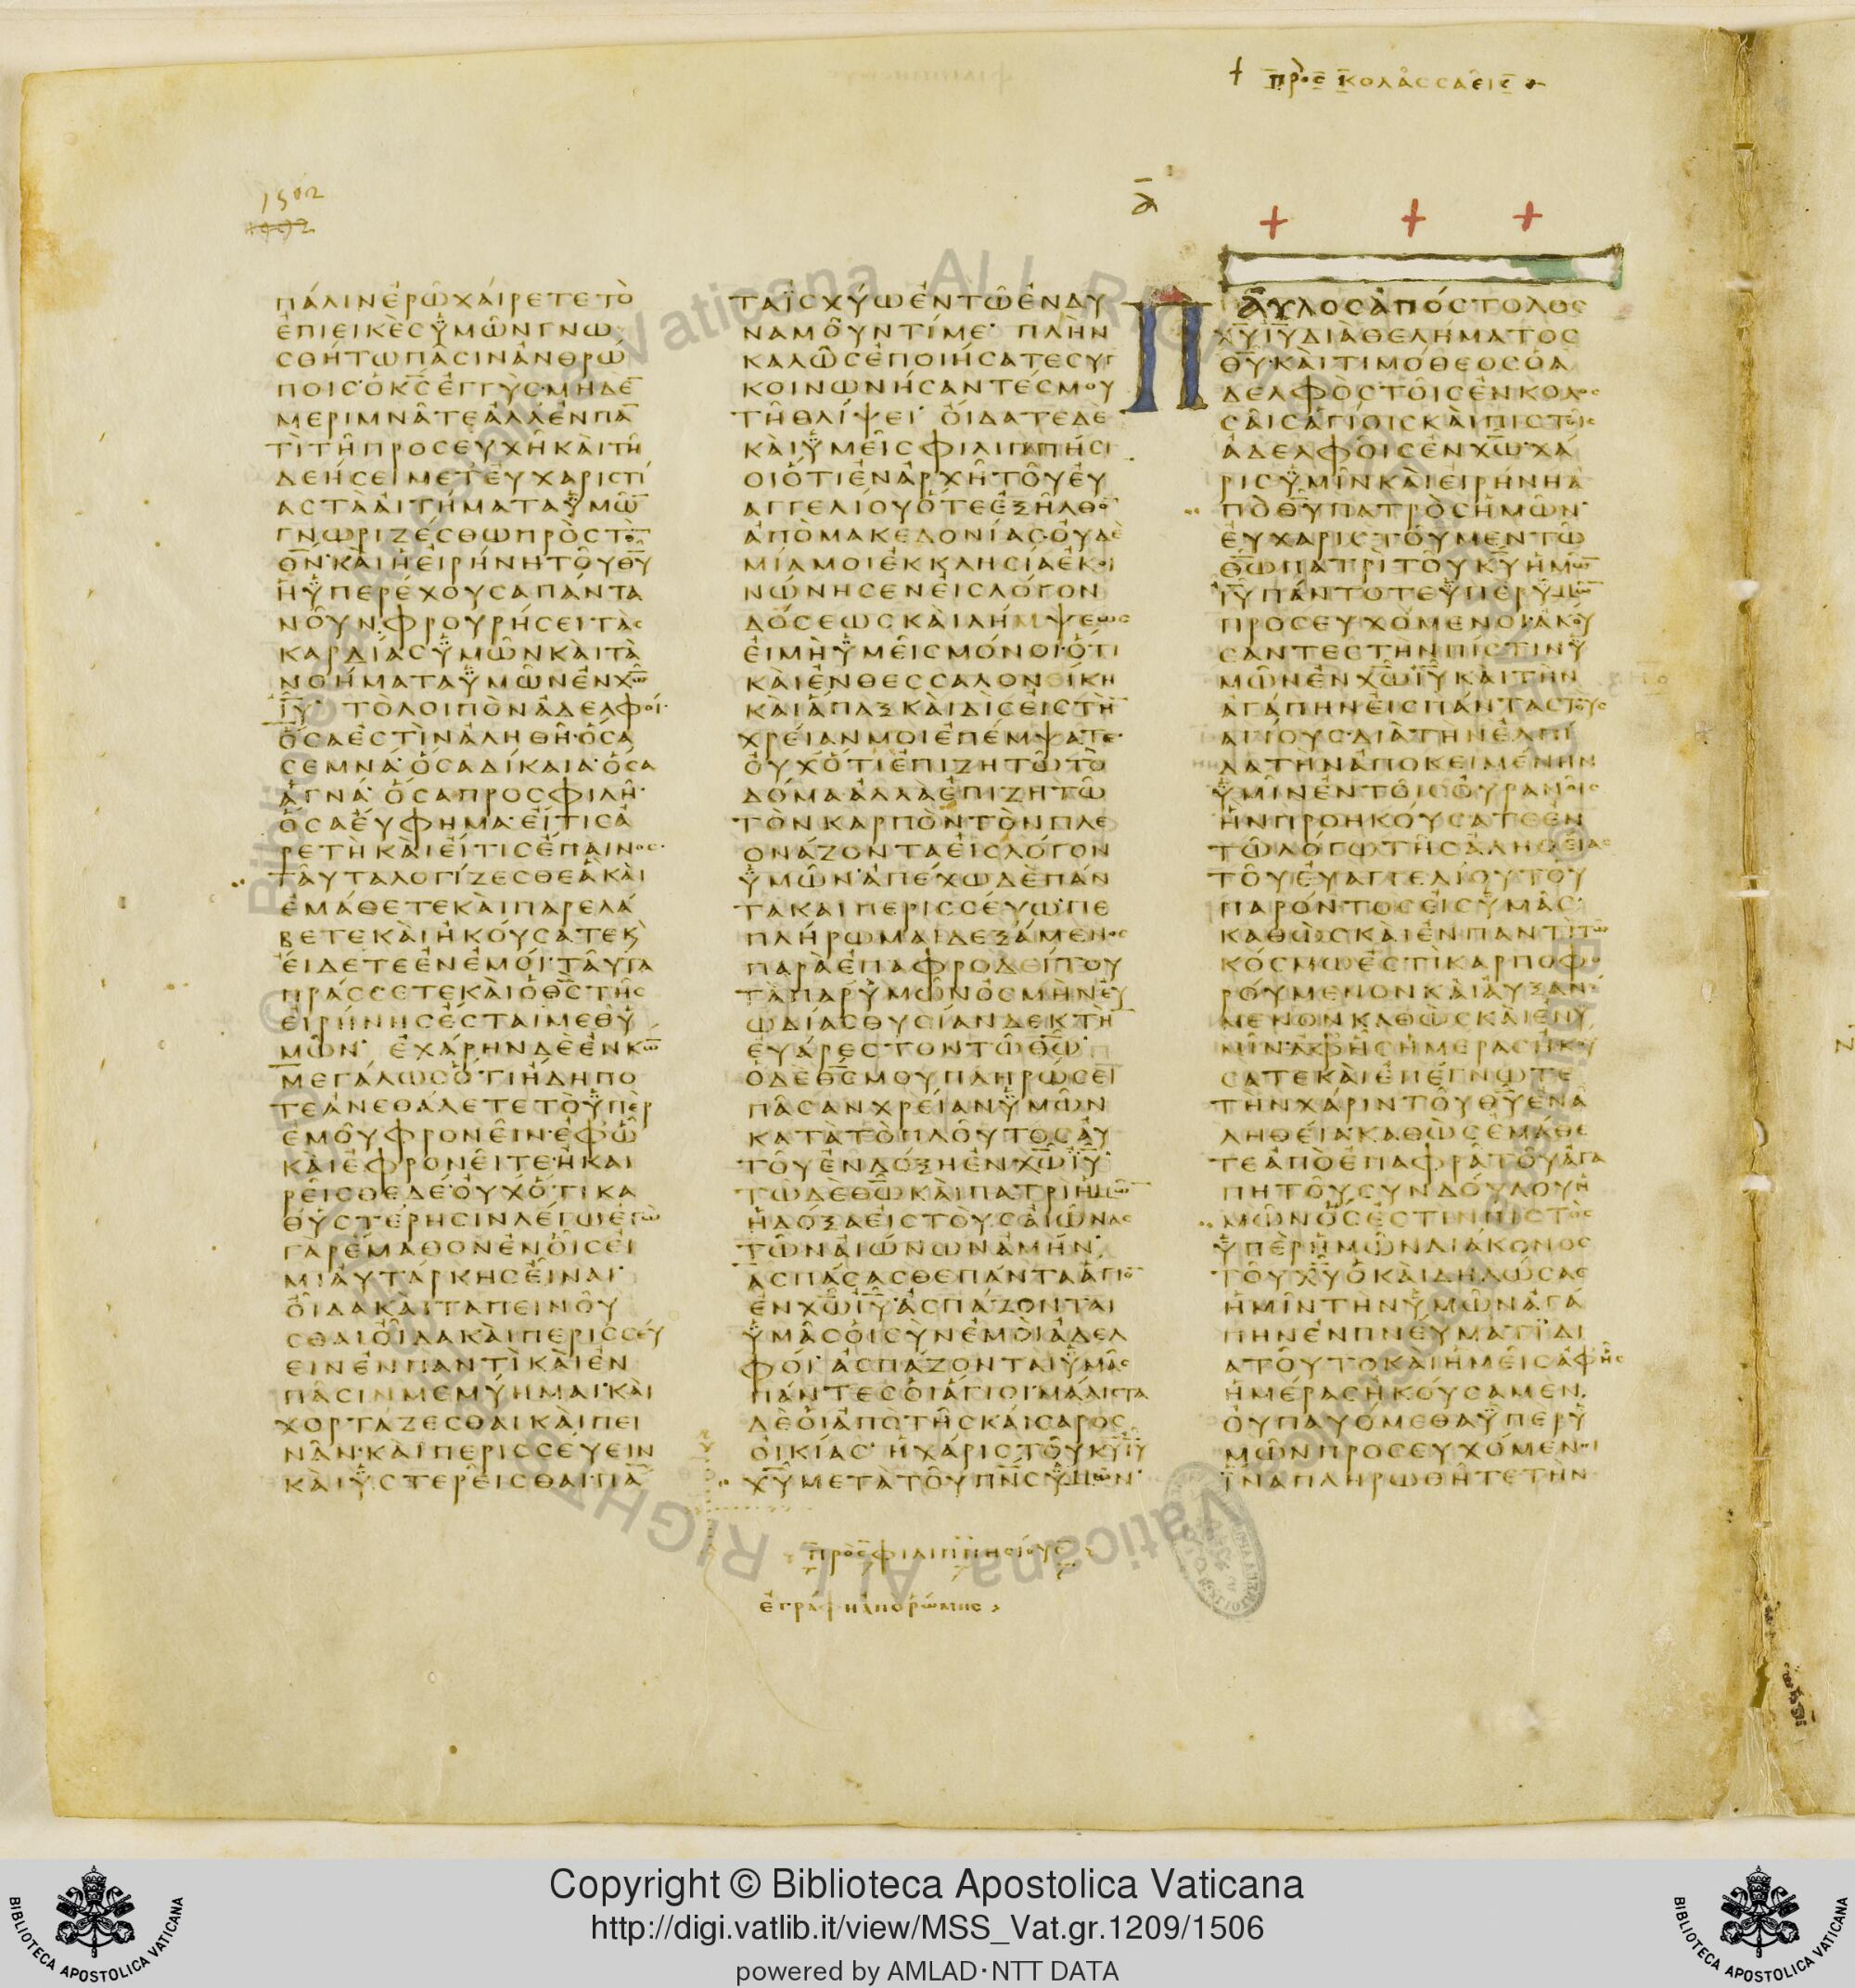 † προς κολασσαεις
1502
1492
α
παλινερωχαιρετετο
επιεικεσϋμωνγνω
σθητωπασινανθρω
ποισ·οκ̅σ̅εγγυσ·μηδε̅
μεριμνατεαλλενπα̅
τιτηπροσευχηκαιτη
δεησειμετευχαριστι
ασταaιτηματαϋμω̅
γνωριζεσθωπροστο̅
θ̅ν̅·καιηειρηνητουθ̅υ̅
ηϋπερεχουσαπαντα
νουνφρουρησειτας
καρδιασϋμωνκαιτα
νοηματαϋμωνενχ̅ω̅
ι̅υ̅· τολοιπον αδελφοι·
οσαεστιναληθη·οσα
σεμνα·οσαδικαια·οσα
αγνα·οσαπροσφιλη·
οσαευφημα·ειτισα
ρετηκαιειτισεπαινος·
ταυταλογιζεσθεακαι
εμαθετεκαιπαρελα
βετεκαιηκουσατεκ
ειδετεενεμοι·ταυτα
πρασσετεκαιοθ̅σ̅της
ειρηνησεσταιμεθυ
μων· εχαρηνδεενκ̅ω̅
μεγαλωσοτιηδηπο
τεανεθαλετετοϋπερ
εμουφρονειν·εφω
καιεφρονειτε·ηκαι
ρεισθεδε·ουχοτικα
θυστερησινλεγω·εγω
γαρεμαθονενοισει
μιαυταρκησειναι·
οιδακαιταπεινου
σθαιοιδακαιπερισσευ
εινενπαντικαιεν
πασινμεμυημαι·και
χορταζεσθαικαιπει
ναν·καιπερισσευειν
καιϋστερεισθαιπα̅
ταϊσχυωεντωενδυ
ναμουντιμε· πλην
καλωσεποιησατεσυγ
κοινωνησαντεσμου
τηθλιψει· οιδατεδε
καιϋμεισφιλιππησι
οιοτιεναρχητουευ
αγγελιουοτεεξηλθο̅
απομακεδονιασ·ουδε
μιαμοιεκκλησιαεκοι
νωνησενεισλογον
δοσεωσκαιλημψεως
ειμηϋμεισμονοι·οτι
καιενθεσσαλονεικη
καιαπαξκαιδισειστη̅
χρειανμοιεπεμψατε·
ουχοτιεπιζητωτο
δομα·αλλαεπιζητω
τονκαρποντονπλε
οναζονταεισλογον
ϋμων·απεχωδεπαν
τακαιπερισσευω·πε
πληρωμαιδεξαμενος
παραεπαφροδειτου
ταπαρϋμωνοσμηνευ
ωδιασθυσιανδεκτη̅
ευαρεστοντωθ̅ω̅·
οδεθ̅σ̅μουπληρωσει
πασανχρειανϋμων
κατατοπλουτοσαυ
τουενδοξηενχ̅ω̅ι̅υ̅·
τωδεθ̅ω̅καιπατριημω̅
ηδοξαειστουσαιωνας
τωναιωνωναμην·
ασπασασθεπανταaγιο̅
ενχ̅ω̅ι̅υ̅·ασπαζονται
ϋμασοισυνεμοιαδελ
φοι·ασπαζονταιϋμας
παντεσοιαγιοι·μαλιστα
δεοιαποτησκαισαρος
οικιας· ηχαριστουκ̅υ̅ι̅υ̅
χ̅υ̅μετατουπ̅ν̅σ̅ϋμων·
προσφιλιππησιους
εγραφηαπορωμης
Παυλοσαποστολος
χ̅υ̅ι̅υ̅διαθεληματος
θ̅υ̅·καιτιμοθεοσοα
δελφοστοισενκολοσ
σαισαγιοισκαιπιστοις
αδελφοισενχ̅ω̅·χα
ρισϋμινκαιειρηνηα
ποθ̅υ̅πατροσημων·
ευχαριστουμεντω
θ̅ω̅πατριτουκ̅υ̅ημω̅
ι̅υ̅παντοτεϋπερϋμω̅
προσευχομενοι·ακου
σαντεστηνπιστινϋ
μωνενχ̅ω̅ι̅υ̅καιτην
αγαπηνεισπανταστους
αγιουσ·διατηνελπι
δατηναποκειμενην
ϋμινεντοισουρανοις
ηνπροηκουσατεεν
τωλογωτησαληθειας
τουευαγγελιουτου
παροντοσεισϋμας·
καθωσκαιενπαντιτω
κοσμωεστικαρποφο
ρουμενονκαιαυξανο
μενονκαθωσκαιενϋ
μιν·αφησημερασηκου
σατεκαιεπεγνωτε
τηνχαριντουθ̅υ̅ενα
ληθεια·καθωσεμαθε
τεαποεπαφρατουαγα
πητουσυνδουλουη
μωνοσεστινπιστος
ϋπερημωνδιακονος
τουχ̅υ̅οκαιδηλωσας
ημιντηνϋμωναγα
πηνενπνευματιδι
ατουτοκαιημεισαφης
ημερασηκουσαμεν·
ουπαυομεθαϋπερϋ
μωνπροσευχομενοι
ϊναπληρωθητετην
Copyright © Biblioteca Apostolica Vaticana
http://digi.vatlib.it/view/MSS_Vat.gr.1209/1506
powered by AMLAD·NTT DATA
BIBLIOTECA APOSTOLICA VATICANA
BIBLIOTECA APOSTOLICA VATICANA